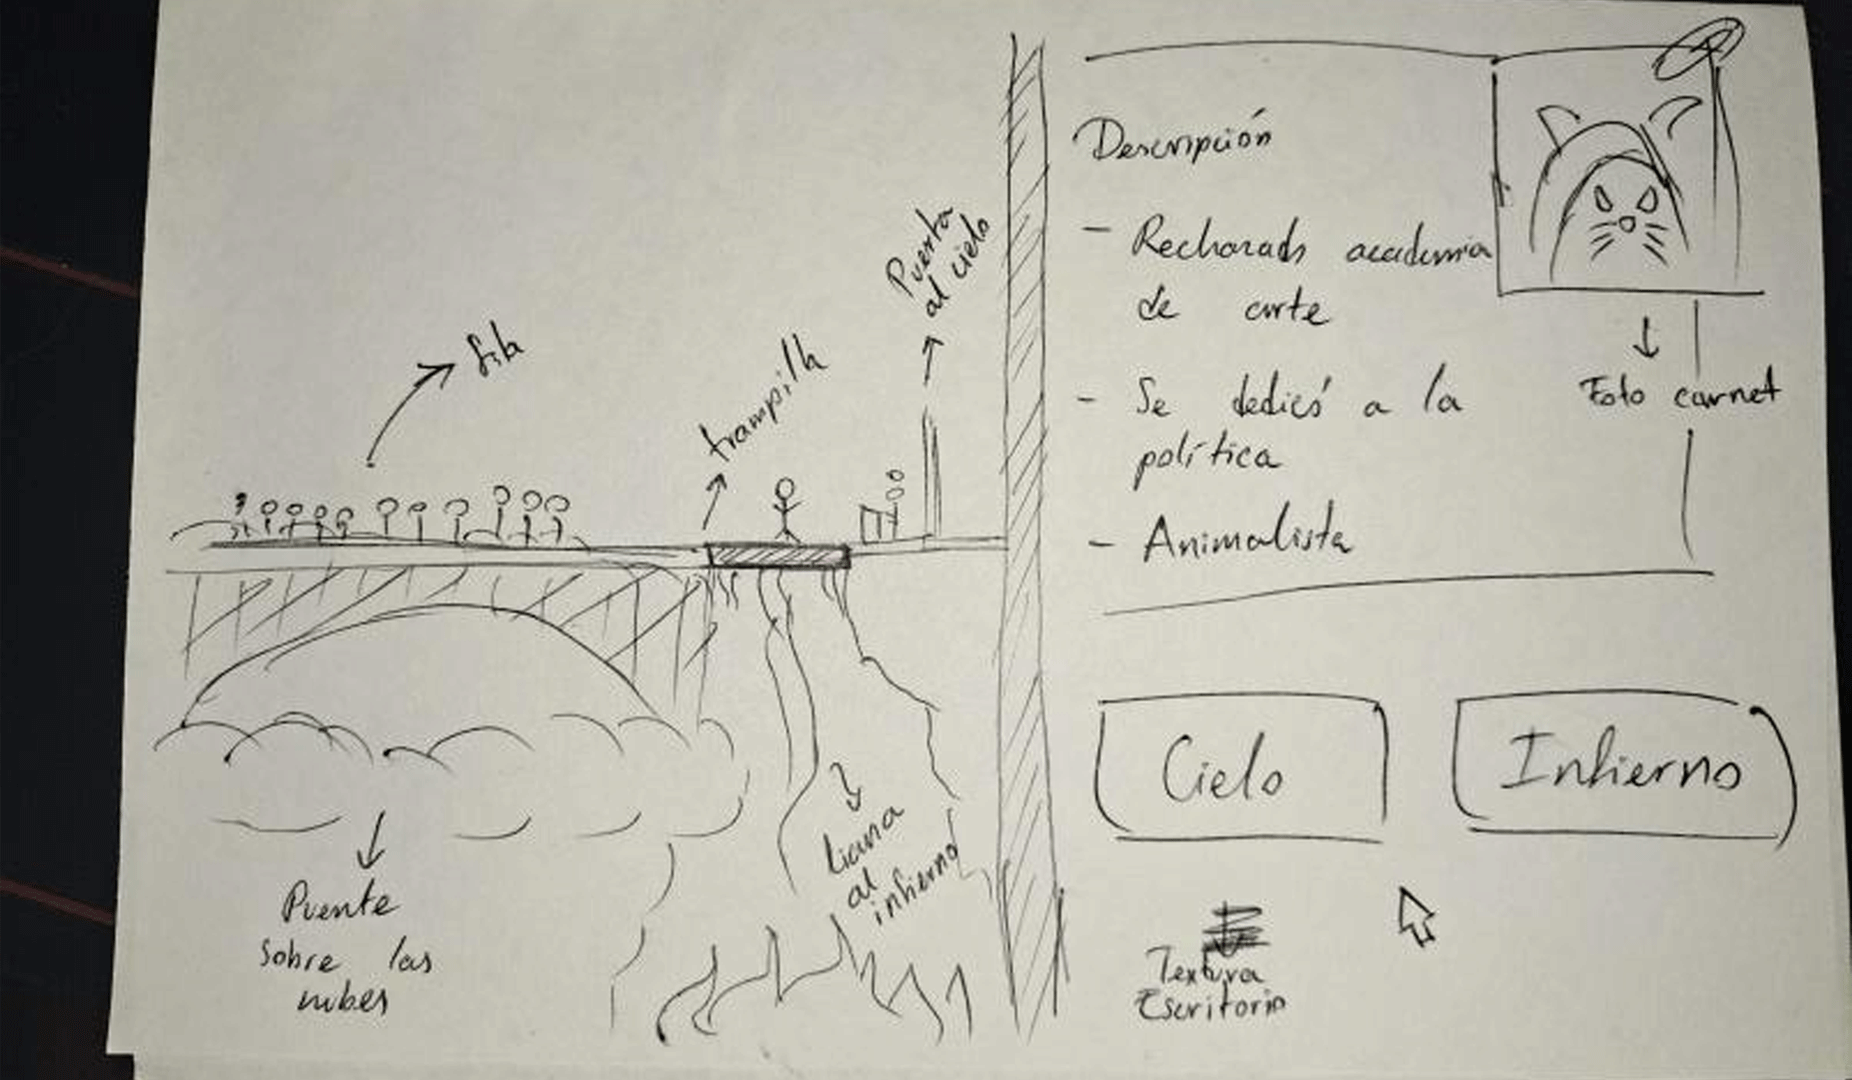 fila
trampilla
Puerta
al cielo
Puente
sobre las
nubes
liana
al
infierno
Descripción
- Rechazado academia
de arte
- Se dedicó a la
política
- Animalista
Foto carnet
Cielo
Infierno
Textura
Escritorio